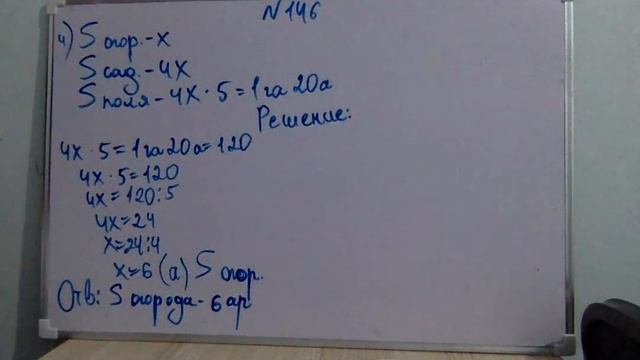 N146
4) S огор.-x
S сад.-4x
S поля-4x·5=1га20а
Решение:
4x·5=1га20а=120
4x·5=120
4x=120:5
4x=24
x=24:4
x=6(а) S огор.
Отв: S огорода-6ар